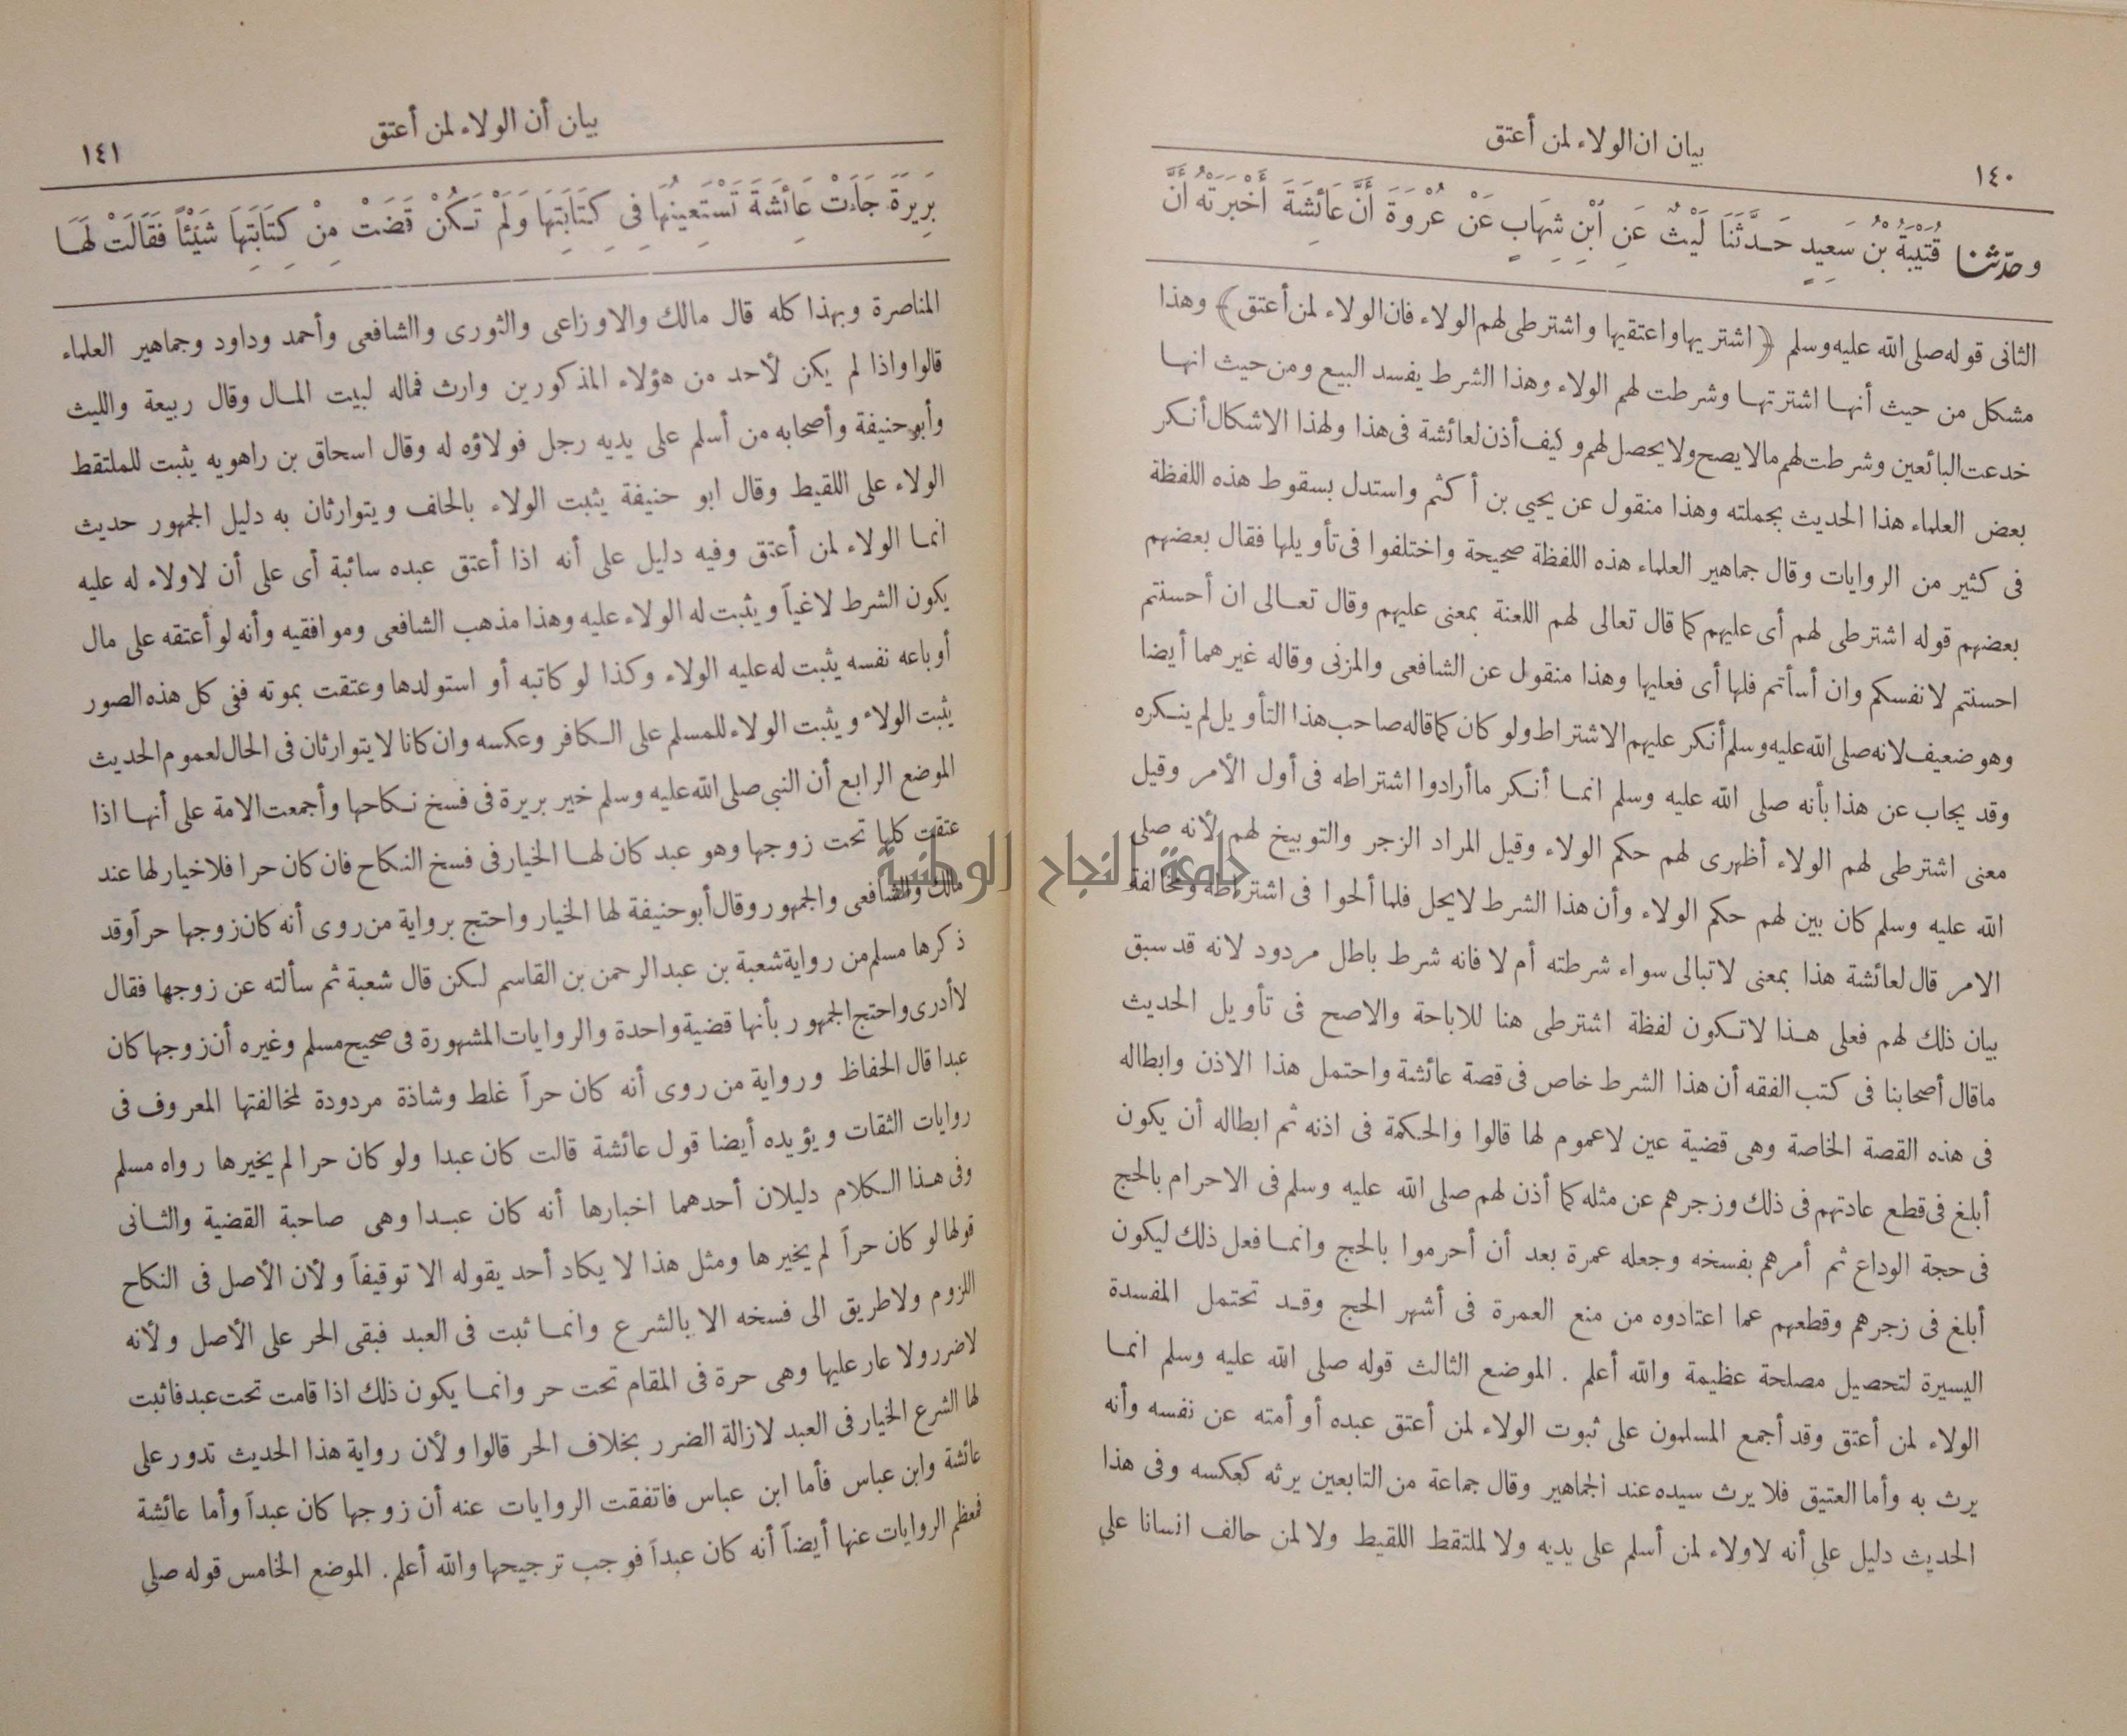 بيان ان الولاء لمن أعتق
١٤٠
وحدّثنا قُتَيْبَةُ بْنُ سَعِيدٍ حَدَّثَنَا لَيْثٌ عَنِ ابْنِ شِهَابٍ عَنْ عُرْوَةَ أَنَّ عَائِشَةَ أَخْبَرَتْهُ أَنَّ
الثانى قوله صلى الله عليه وسلم ﴿اشتريها واعتقيها واشترطى لهم الولاء فان الولاء لمن أعتق﴾ وهذا
مشكل من حيث أنها اشترتها وشرطت لهم الولاء وهذا الشرط يفسد البيع ومن حيث انها
خدعت البائعين وشرطت لهم مالايصح ولا يحصل لهم وكيف أذن لعائشة فى هذا ولهذا الاشكال أنكر
بعض العلماء هذا الحديث بجملته وهذا منقول عن يحيى بن أكثم واستدل بسقوط هذه اللفظة
فى كثير من الروايات وقال جماهير العلماء هذه اللفظة صحيحة واختلفوا فى تأويلها فقال بعضهم
بعضهم قوله اشترطى لهم أى عليهم كما قال تعالى لهم اللعنة بمعنى عليهم وقال تعالى ان أحسنتم
احسنتم لانفسكم وان أسأتم فلها أى فعليها وهذا منقول عن الشافعى والمزنى وقاله غيرهما أيضا
وهو ضعيف لانه صلى الله عليه وسلم أنكر عليهم الاشتراط ولو كان كما قاله صاحب هذا التأويل لم ينكره
وقد يجاب عن هذا بأنه صلى الله عليه وسلم انما أنكر ما أرادوا اشتراطه فى أول الأمر وقيل
معنى اشترطى لهم الولاء أظهرى لهم حكم الولاء وقيل المراد الزجر والتوبيخ لهم لأنه صلى
الله عليه وسلم كان بين لهم حكم الولاء وأن هذا الشرط لايحل فلما ألحوا فى اشتراطه ومخالفة
الامر قال لعائشة هذا بمعنى لاتبالى سواء شرطته أم لا فانه شرط باطل مردود لانه قد سبق
بيان ذلك لهم فعلى هذا لاتكون لفظة اشترطى هنا للاباحة والاصح فى تأويل الحديث
ماقال أصحابنا فى كتب الفقه أن هذا الشرط خاص فى قصة عائشة واحتمل هذا الاذن وابطاله
فى هذه القصة الخاصة وهى قضية عين لاعموم لها قالوا والحكمة فى اذنه ثم ابطاله أن يكون
أبلغ فى قطع عادتهم فى ذلك وزجرهم عن مثله كما أذن لهم صلى الله عليه وسلم فى الاحرام بالحج
فى حجة الوداع ثم أمرهم بفسخه وجعله عمرة بعد أن أحرموا بالحج وانما فعل ذلك ليكون
أبلغ فى زجرهم وقطعهم عما اعتادوه من منع العمرة فى أشهر الحج وقد تحتمل المفسدة
اليسيرة لتحصيل مصلحة عظيمة والله أعلم . الموضع الثالث قوله صلى الله عليه وسلم انما
الولاء لمن أعتق وقد أجمع المسلمون على ثبوت الولاء لمن أعتق عبده أو أمته عن نفسه وأنه
يرث به وأما العتيق فلا يرث سيده عند الجماهير وقال جماعة من التابعين يرثه كعكسه وفى هذا
الحديث دليل على أنه لاولاء لمن أسلم على يديه ولا لملتقط اللقيط ولا لمن حالف انسانا على
بيان أن الولاء لمن أعتق
١٤١
بَرِيرَةَ جَاءَتْ عَائِشَةَ تَسْتَعِينُهَا فِى كِتَابَتِهَا وَلَمْ تَكُنْ قَضَتْ مِنْ كِتَابَتِهَا شَيْئًا فَقَالَتْ لَهَا
المناصرة وبهذا كله قال مالك والاوزاعى والثورى والشافعى وأحمد وداود وجماهير العلماء
قالوا واذا لم يكن لأحد من هؤلاء المذكورين وارث فماله لبيت المال وقال ربيعة والليث
وأبو حنيفة وأصحابه من أسلم على يديه رجل فولاؤه له وقال اسحاق بن راهويه يثبت للملتقط
الولاء على اللقيط وقال ابو حنيفة يثبت الولاء بالحلف ويتوارثان به دليل الجمهور حديث
انما الولاء لمن أعتق وفيه دليل على أنه اذا أعتق عبده سائبة أى على أن لاولاء له عليه
يكون الشرط لاغياً ويثبت له الولاء عليه وهذا مذهب الشافعى وموافقيه وأنه لو أعتقه على مال
أو باعه نفسه يثبت له عليه الولاء وكذا لو كاتبه أو استولدها وعتقت بموته ففى كل هذه الصور
يثبت الولاء ويثبت الولاء للمسلم على الكافر وعكسه وان كانا لا يتوارثان فى الحال لعموم الحديث
الموضع الرابع أن النبى صلى الله عليه وسلم خير بريرة فى فسخ نكاحها وأجمعت الامة على أنها اذا
عتقت كلها تحت زوجها وهو عبد كان لها الخيار فى فسخ النكاح فان كان حرا فلا خيار لها عند
مالك والشافعى والجمهور وقال أبو حنيفة لها الخيار واحتج برواية من روى أنه كان زوجها حراً وقد
ذكرها مسلم من رواية شعبة بن عبد الرحمن بن القاسم لكن قال شعبة ثم سألته عن زوجها فقال
لا أدرى واحتج الجمهور بأنها قضية واحدة والروايات المشهورة فى صحيح مسلم وغيره أن زوجها كان
عبدا قال الحفاظ ورواية من روى أنه كان حراً غلط وشاذة مردودة لمخالفتها المعروف فى
روايات الثقات ويؤيده أيضا قول عائشة قالت كان عبدا ولو كان حرا لم يخيرها رواه مسلم
وفى هذا الكلام دليلان أحدهما اخبارها أنه كان عبدا وهى صاحبة القضية والثانى
قولها لو كان حراً لم يخيرها ومثل هذا لا يكاد أحد يقوله الا توقيفاً ولأن الأصل فى النكاح
اللزوم ولا طريق الى فسخه الا بالشرع وانما ثبت فى العبد فبقى الحر على الأصل ولأنه
لا ضرر ولا عار عليها وهى حرة فى المقام تحت حر وانما يكون ذلك اذا قامت تحت عبد فاثبت
لها الشرع الخيار فى العبد لازالة الضرر بخلاف الحر قالوا ولأن رواية هذا الحديث تدور على
عائشة وابن عباس فأما ابن عباس فاتفقت الروايات عنه أن زوجها كان عبداً وأما عائشة
فمعظم الروايات عنها أيضاً أنه كان عبداً فوجب ترجيحها والله أعلم. الموضع الخامس قوله صلى
جامعة النجاح الوطنية